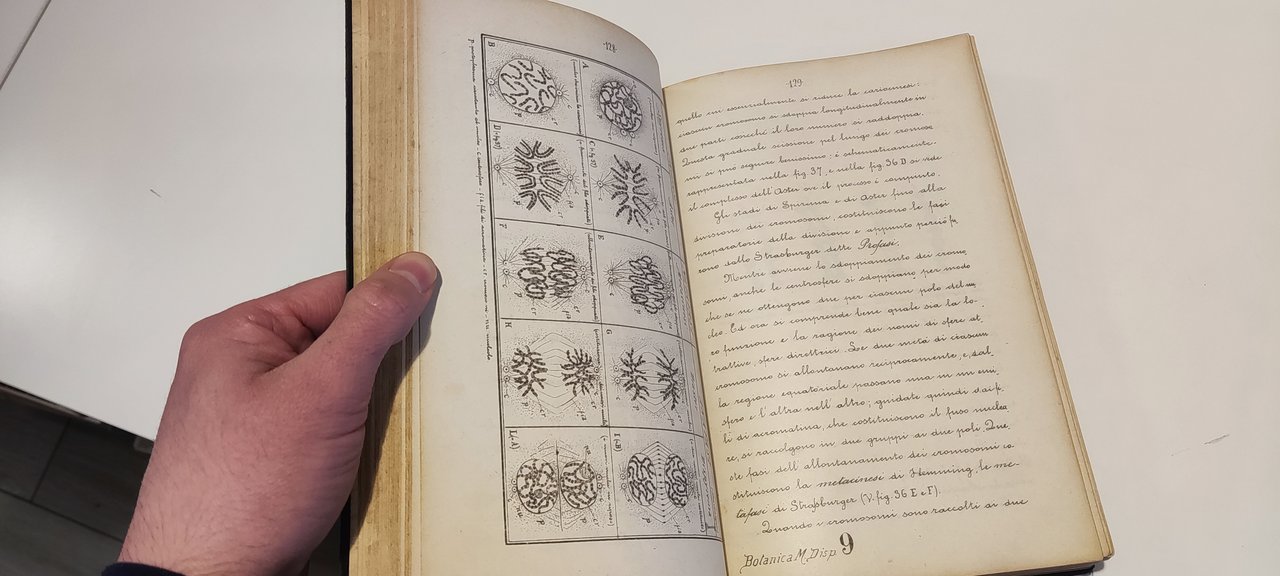 -128-
B
A
D (=fig 37)
C (=fig 37)
F
E
H
G
L (=A)
I (=B)
-129-
quello cui essenzialmente si riduce la cariocinesi:
ciascun cromosomo si sdoppia longitudinalmente in
due parti cosicchè il loro numero si raddoppia.
Questa graduale scissione pel lungo dei cromoso
mi si può seguire benissimo: è schematicamente
rappresentata nella fig. 37, e nella fig. 36 D si vede
il complesso dell'Aster ove il processo è compiuto.
Gli stadi di Spirema e di Aster fino alla
divisione dei cromosomi, costituiscono le fasi
preparatorie della divisione e appunto perciò fu
rono dallo Strasburger dette Profasi.
Mentre avviene lo sdoppiamento dei cromo
somi, anche le centrosfere si sdoppiano per modo
che se ne ottengono due per ciascun polo del nu
cleo. Ed ora si comprende bene quale sia la lo-
ro funzione e la ragione dei nomi di sfere at
trattive, sfere direttrici. Le due metà di ciascun
cromosomo si allontanano reciprocamente, e, dal
la regione equatoriale passano una in un emi
sfero e l'altra nell'altro; guidate quindi dai fi
li di acromatina, che costituiscono il fuso nuclea
re, si raccolgono in due gruppi ai due poli. Que
ste fasi dell'allontanamento dei cromosomi co
stituiscono la metacinesi di Flemming, le me-
tafasi di Strasburger (V. fig. 36 E e F).
Quando i cromosomi sono raccolti ai due
Botanica M. Disp 9